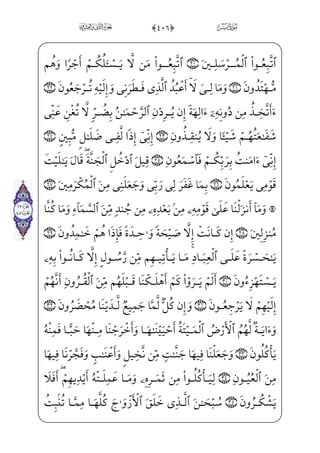 ﴿٤٠٦﴾
ٱتَّبِعُوا۟ ٱلْمُرْسَلِينَ ٢٠ ٱتَّبِعُوا۟ مَن لَّا يَسْـَٔلُكُمْ أَجْرًا وَهُم
مُّهْتَدُونَ ٢١ وَمَا لِىَ لَآ أَعْبُدُ ٱلَّذِى فَطَرَنِى وَإِلَيْهِ تُرْجَعُونَ ٢٢
ءَأَتَّخِذُ مِن دُونِهِۦٓ ءَالِهَةً إِن يُرِدْنِ ٱلرَّحْمَٰنُ بِضُرٍّ لَّا تُغْنِ عَنِّى
شَفَٰعَتُهُمْ شَيْـًٔا وَلَا يُنقِذُونِ ٢٣ إِنِّىٓ إِذًا لَّفِى ضَلَٰلٍ مُّبِينٍ ٢٤
إِنِّىٓ ءَامَنتُ بِرَبِّكُمْ فَٱسْمَعُونِ ٢٥ قِيلَ ٱدْخُلِ ٱلْجَنَّةَ ۖ قَالَ يَٰلَيْتَ
قَوْمِى يَعْلَمُونَ ٢٦ بِمَا غَفَرَ لِى رَبِّى وَجَعَلَنِى مِنَ ٱلْمُكْرَمِينَ ٢٧
۞ وَمَآ أَنزَلْنَا عَلَىٰ قَوْمِهِۦ مِنۢ بَعْدِهِۦ مِن جُندٍ مِّنَ ٱلسَّمَآءِ وَمَا كُنَّا
مُنزِلِينَ ٢٨ إِن كَانَتْ إِلَّا صَيْحَةً وَٰحِدَةً فَإِذَا هُمْ خَٰمِدُونَ ٢٩
يَٰحَسْرَةً عَلَى ٱلْعِبَادِ ۚ مَا يَأْتِيهِم مِّن رَّسُولٍ إِلَّا كَانُوا۟ بِهِۦ
يَسْتَهْزِءُونَ ٣٠ أَلَمْ يَرَوْا۟ كَمْ أَهْلَكْنَا قَبْلَهُم مِّنَ ٱلْقُرُونِ أَنَّهُمْ
إِلَيْهِمْ لَا يَرْجِعُونَ ٣١ وَإِن كُلٌّ لَّمَّا جَمِيعٌ لَّدَيْنَا مُحْضَرُونَ ٣٢
وَءَايَةٌ لَّهُمُ ٱلْأَرْضُ ٱلْمَيْتَةُ أَحْيَيْنَٰهَا وَأَخْرَجْنَا مِنْهَا حَبًّا فَمِنْهُ
يَأْكُلُونَ ٣٣ وَجَعَلْنَا فِيهَا جَنَّٰتٍ مِّن نَّخِيلٍ وَأَعْنَٰبٍ وَفَجَّرْنَا فِيهَا
مِنَ ٱلْعُيُونِ ٣٤ لِيَأْكُلُوا۟ مِن ثَمَرِهِۦ وَمَا عَمِلَتْهُ أَيْدِيهِمْ ۖ أَفَلَا
يَشْكُرُونَ ٣٥ سُبْحَٰنَ ٱلَّذِى خَلَقَ ٱلْأَزْوَٰجَ كُلَّهَا مِمَّا تُنۢبِتُ